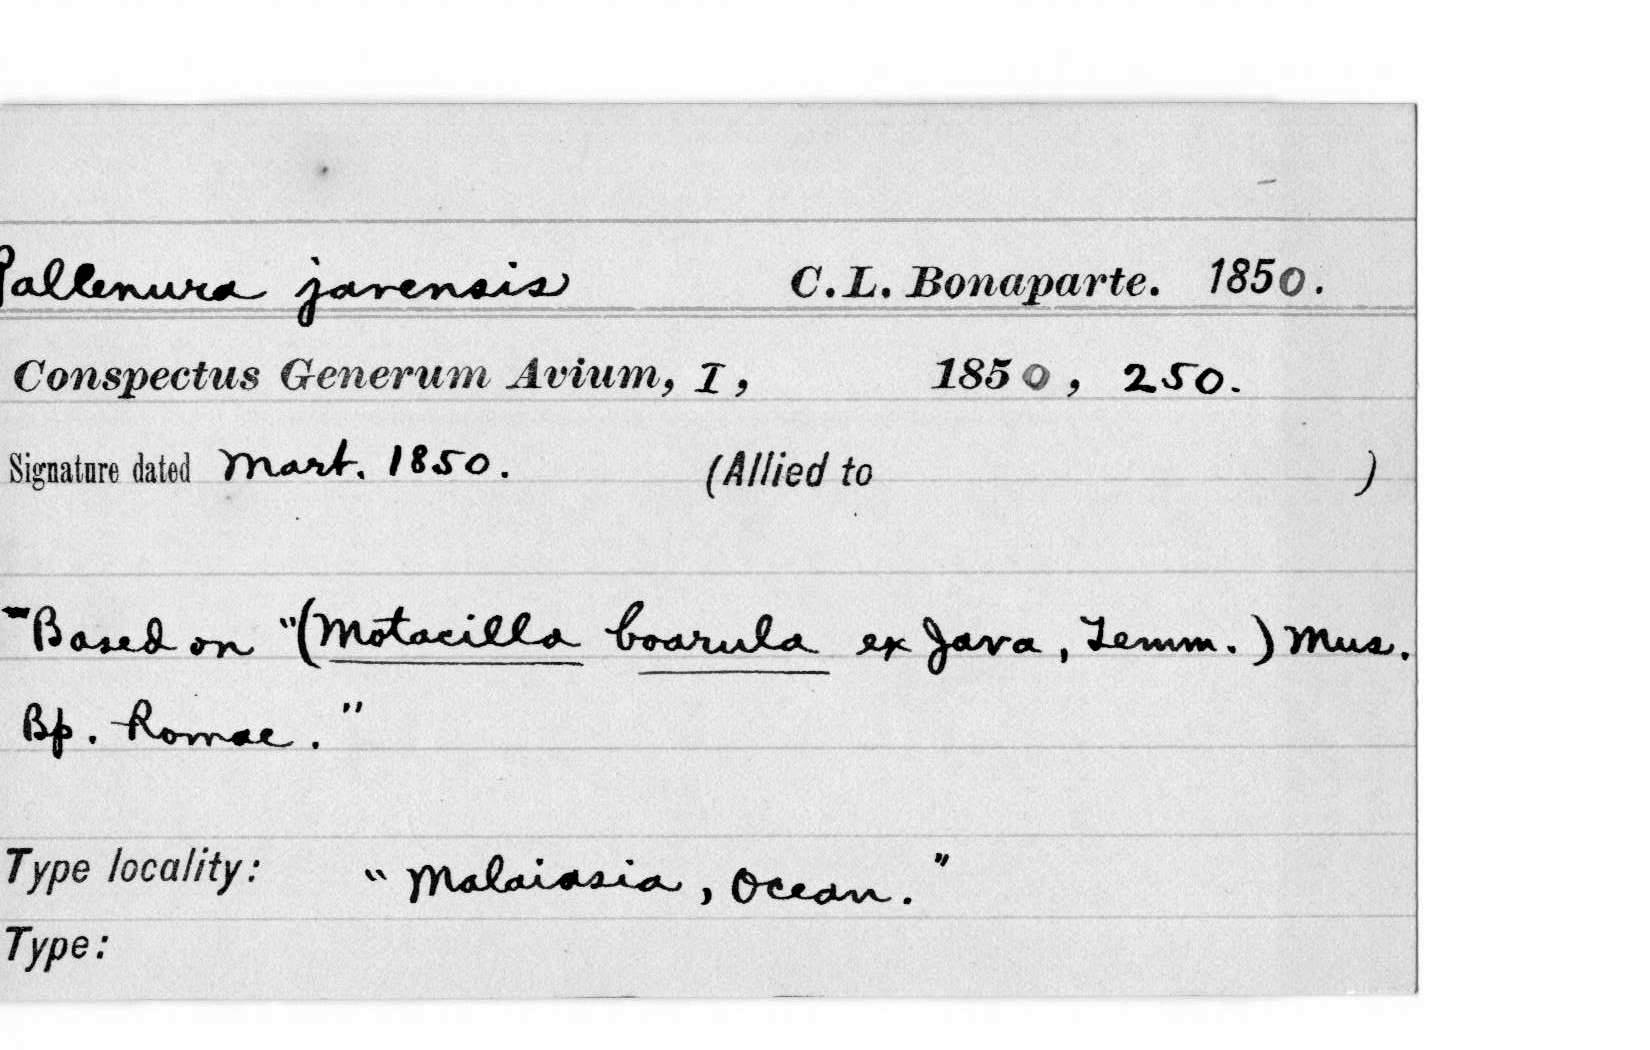 Pallenura javensis C. L. Bonaparte. 1850.
Conspectus Generum Avium, I, 1850, 250.
Signature dated Mart. 1850. (Allied to )
Based on "(Motacilla boarula ex Java, Temm.) Mus.
Bp. Romae."
Type locality: "Malaiasia, Ocean."
Type: